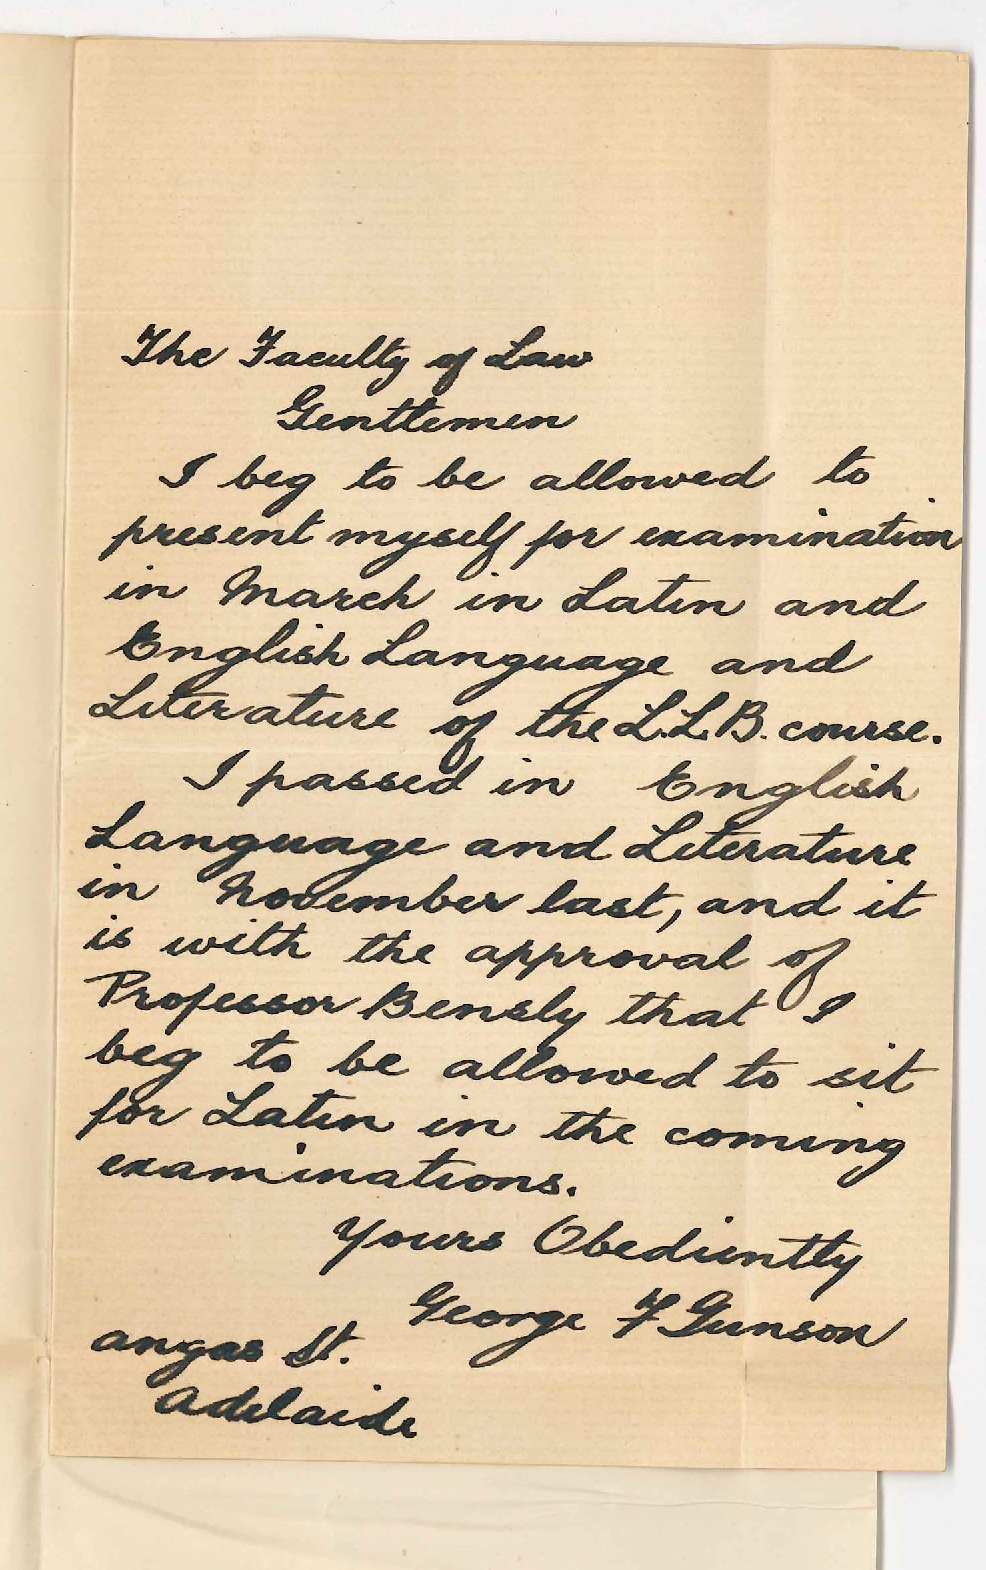 The Faculty of Law
Gentlemen
I beg to be allowed to
present myself for examination
in March in Latin and
English Language and
Literature of the L.L.B. course.
I passed in English
Language and Literature
in November last, and it
is with the approval of
Professor Bensly that I
beg to be allowed to sit
for Latin in the coming
examinations.
Yours Obediently
George F Gunson
Angas St.
Adelaide